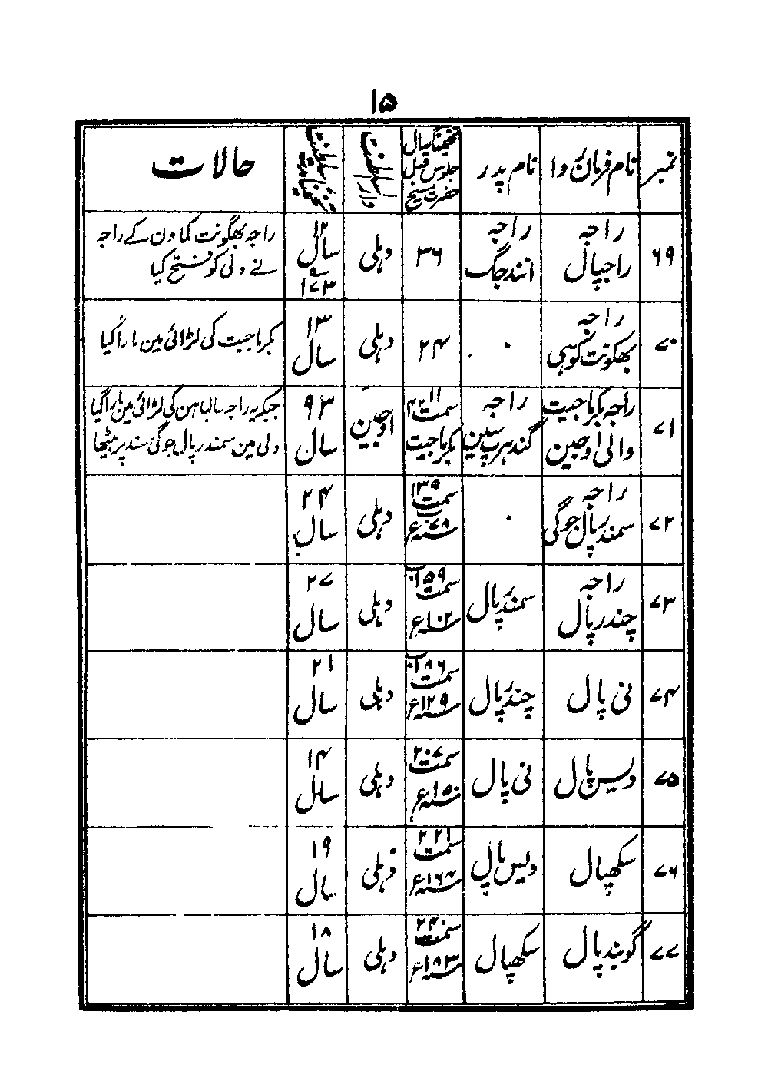 ۱۵
نمبر نام فرمان روا نام پدر جلوس قبل حضرت مسیح دار السلطنت حالات
۶۹ راجہ راجپال راجہ انندجگ ۳۶ دہلی ۱۲ سال راجہ بھگونت کماون کے راجہ
نے دلی کو فتح کیا
۷۰ راجہ بھگونت کوہی ۰ ۲۴ دہلی ۱۳ سال بکرماجیت کی لڑائی مین مارا گیا
۷۱ راجہ بکرماجیت والی اوجین راجہ گندہرپ سین سمت بکرماجیت اوجین ۹۳ سال جبکہ یہ راجہ سالباہن کی لڑائی مین مارا گیا
دلی مین سمندرپال جوگی مسند پر بیٹھا
۷۲ راجہ سمندرپال جوگی ۰ سمت ۱۳۵ دہلی ۲۴ سال
۷۳ راجہ چندرپال سمندرپال سمت ۱۵۹ ۱۰۲ء دہلی ۲۷ سال
۷۴ نی پال چندرپال سمت ۱۸۶ ۱۲۹ء دہلی ۲۱ سال
۷۵ دیس پال نی پال سمت ۲۰۷ ۱۵۰ء دہلی ۱۴ سال
۷۶ سکھپال دیس پال سمت ۲۲۱ ۱۶۴ء دہلی ۱۹ سال
۷۷ گوبندپال سکھپال سمت ۲۴۰ ۱۸۳ء دہلی ۱۸ سال